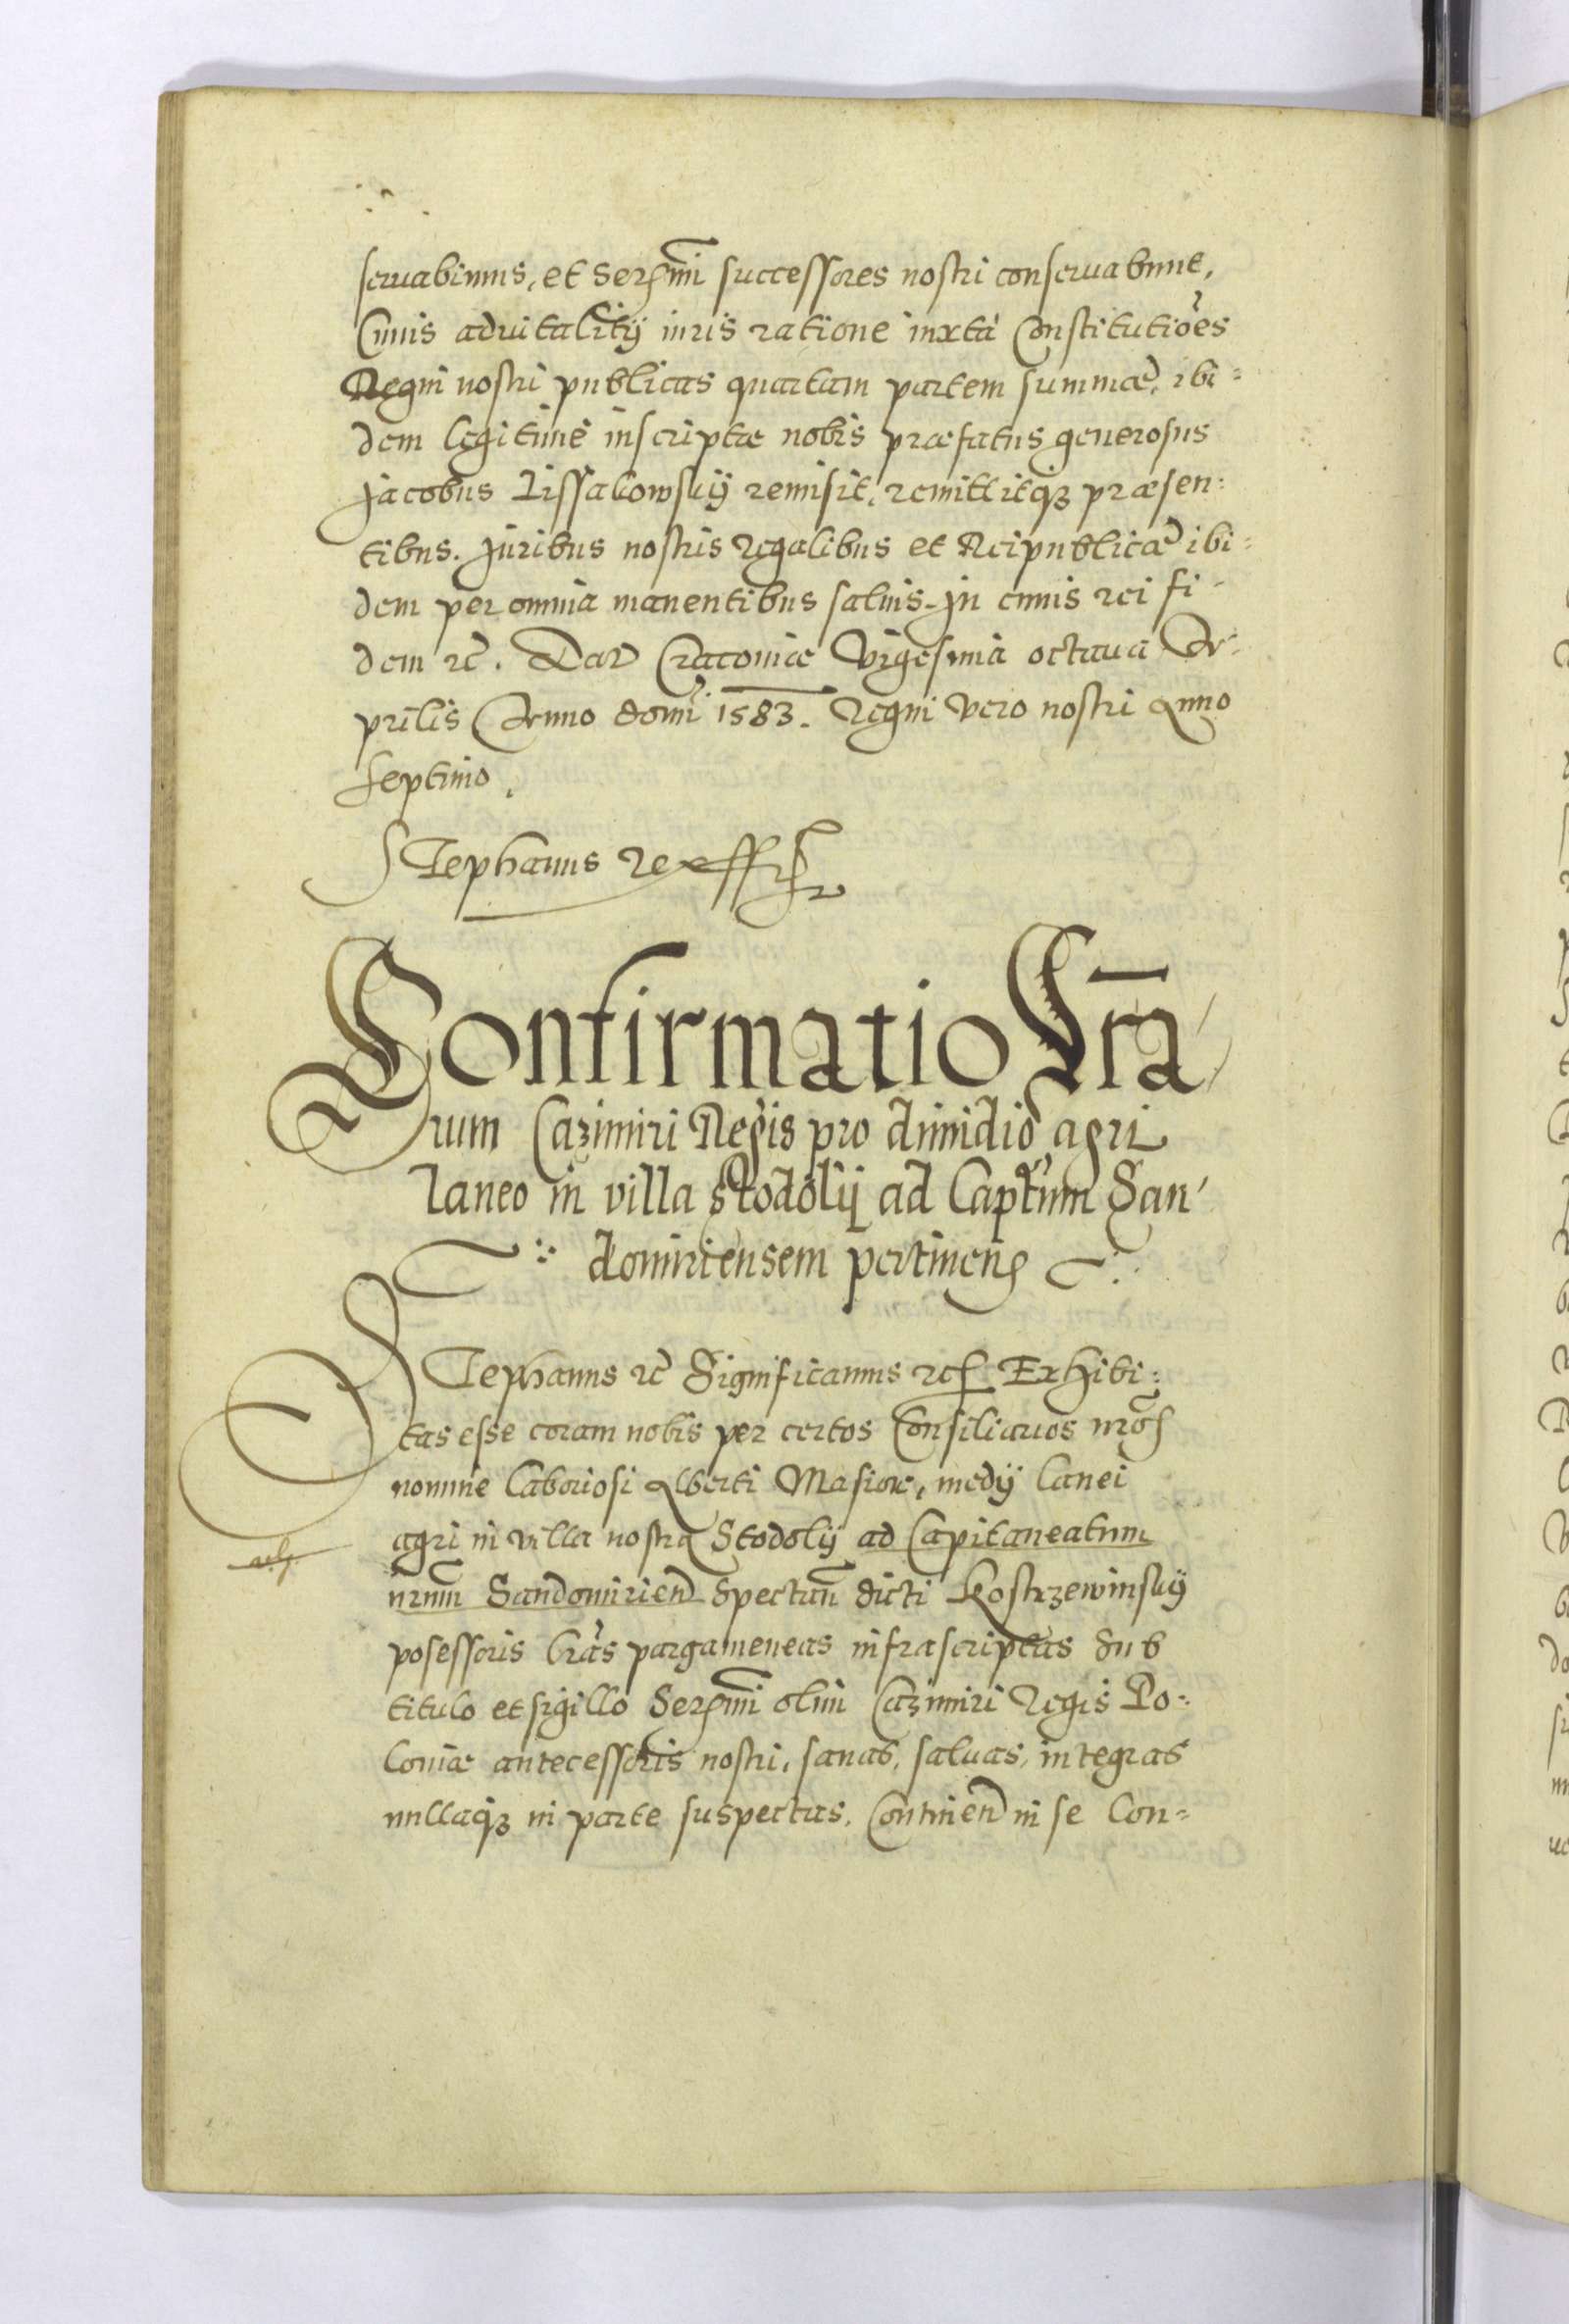 seruabimus, et Serṃmi successores nostri conseruabunt,
Cuius aduitalitÿ iuris ratione iuxtà Constitutiões
Regni nostri publicas quartam partem summæ, ibi=
dem legitimè inscriptæ nobis præfatus generosus
Jacobus Lissakowskÿ remisit, remittitqʒ præsen:
tibus. Juribus nostris Regalibus et Reipublicæ ibi:
dem per omnia manentibus saluis. In cuius rei fi-
dem rc̃. Dat Cracouiæ Vigesima octaua A-
prilis Anno domĩ 1583. Regni vero nostri Anno
septimo.
Stephanus Rex
Confirmatio Lr̃a
rum Cazimiri Regis pro dimidio agri
laneo in villa Stodolÿ ad Capt̃um San
domiriensem pertineñ
Stephanus rc̃ Significamus rc Exhibi:
tas esse coram nobis per certos Consiliarios nr̃os
nomine laboriosi Alberti Masior, medÿ lanei
agri in villa nostra Stodolÿ ad Capitaneatum
nrñm Sandomirien Spectañ dicti Kostrzewinskÿ
posessoris lr̃as pargameneas infrascriptas sub
titulo et sigillo Serṃmi olim Cazimiri Regis Po-
loniæ antecessoris nostri, sanas, saluas, integras
nullaqʒ in parte suspectas, Continen in se Con=